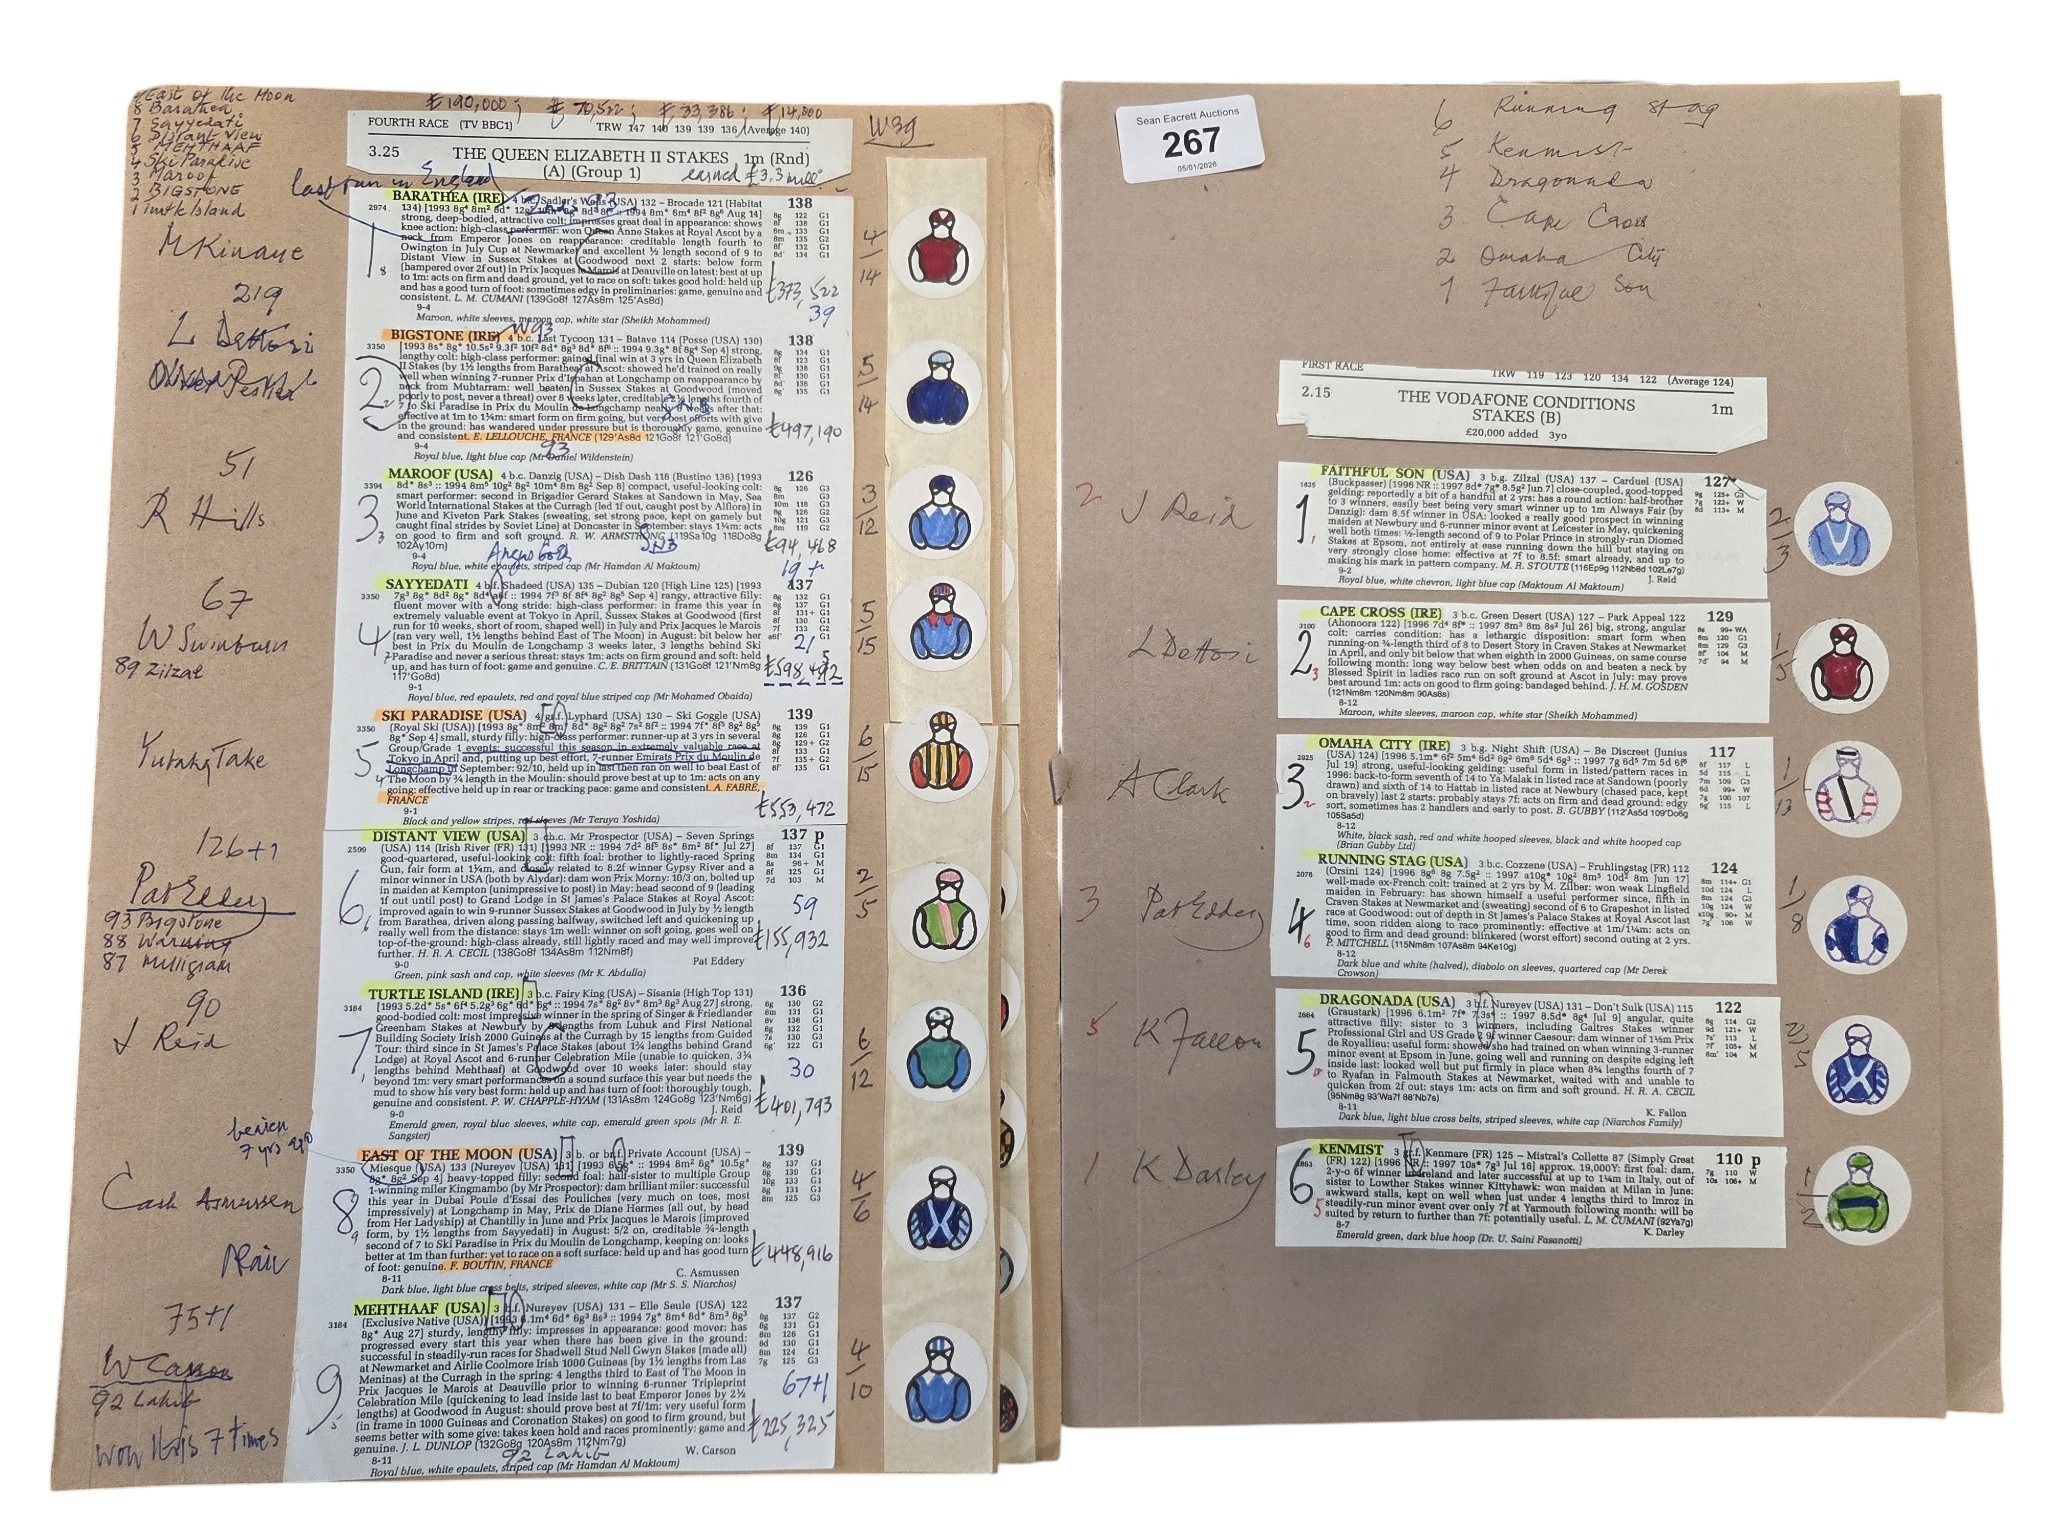 9 East of the Moon
8 Barathea
7 Sayyedati
6 Distant View
5 MEHTHAAF
4 Ski Paradise
3 Maroof
2 BIGSTONE
1 Turtle Island
£190,000; £70,522; £33,386; £14,800
FOURTH RACE (TV BBC1) TRW 147 140 139 139 136 (Average 140)
3.25 THE QUEEN ELIZABETH II STAKES 1m (Rnd)
(A) (Group 1) earned £3.3 mill
last run in England
M Kinane
219
L Dettori
51
R Hills
67
W Swinburn
89 Zilzal
Yutaka Take
126+1
Pat Eddery
93 Bigstone
88 Warning
87 Milligram
90
J Reid
Cash Asmussen
75+1
W Carson
92 Lahib
won this 7 times
BARATHEA (IRE) 4 b.c. Sadler's Wells (USA) 132 – Brocade 121 (Habitat 138
strong, deep-bodied, attractive colt: impresses great deal in appearance: shows
knee action: high-class performer: won Queen Anne Stakes at Royal Ascot by a
neck from Emperor Jones on reappearance: creditable length fourth to
Owington in July Cup at Newmarket and excellent ½ length second of 9 to
Distant View in Sussex Stakes at Goodwood next 2 starts: below form
(hampered over 2f out) in Prix Jacques le Marois at Deauville on latest: best at up
to 1m: acts on firm and dead ground, yet to race on soft: takes good hold: held up
and has a good turn of foot: sometimes edgy in preliminaries: game, genuine and
consistent. L. M. CUMANI (139Go8f 127As8m 125'As8d)
9-4
£373,522
39
Maroon, white sleeves, maroon cap, white star (Sheikh Mohammed)
BIGSTONE (IRE) 4 b.c. Last Tycoon 131 – Batave 114 (Posse (USA) 130) 138
lengthy colt: high-class performer: gained final win at 3 yrs in Queen Elizabeth
II Stakes (by 1½ lengths from Barathea) at Ascot: showed he'd trained on really
well when winning 7-runner Prix d'Ispahan at Longchamp on reappearance by
neck from Muhtarram: well beaten in Sussex Stakes at Goodwood (moved
poorly to post, never a threat) over 8 weeks later, creditable 2½ lengths fourth of
7 to Ski Paradise in Prix du Moulin de Longchamp nearly 6 weeks after that:
effective at 1m to 1¼m: smart form on firm going, but very best efforts with give
in the ground: has wandered under pressure but is thoroughly game, genuine
and consistent. E. LELLOUCHE, FRANCE (129'As8d 121Go8f 121'Go8d)
9-4
£497,190
Royal blue, light blue cap (Mr Daniel Wildenstein)
MAROOF (USA) 4 b.c. Danzig (USA) – Dish Dash 118 (Bustino 136) [1993 126
smart performer: second in Brigadier Gerard Stakes at Sandown in May, Sea
World International Stakes at the Curragh (led 1f out, caught post by Alflora) in
June and Kiveton Park Stakes (sweating, set strong pace, kept on gamely but
caught final strides by Soviet Line) at Doncaster in September: stays 1¼m: acts
on good to firm and soft ground. R. W. ARMSTRONG (119Sa10g 118Do8g
102Ay10m)
9-4
£94,468
Royal blue, white epaulets, striped cap (Mr Hamdan Al Maktoum)
SAYYEDATI 4 b.f. Shadeed (USA) 135 – Dubian 120 (High Line 125) [1993 137
fluent mover with a long stride: high-class performer: in frame this year in
extremely valuable event at Tokyo in April, Sussex Stakes at Goodwood (first
run for 10 weeks, short of room, shaped well) in July and Prix Jacques le Marois
(ran very well, 1½ lengths behind East of The Moon) in August: bit below her
best in Prix du Moulin de Longchamp 3 weeks later, 3 lengths behind Ski
Paradise and never a serious threat: stays 1m: acts on firm and soft: held
up, and has turn of foot: game and genuine. C. E. BRITTAIN (131Go8f 121'Nm8g
117'Go8d)
9-1
Royal blue, red epaulets, red and royal blue striped cap (Mr Mohamed Obaida)
SKI PARADISE (USA) 4 gr.f. Lyphard (USA) 130 – Ski Goggle (USA) 139
8g* Sep 4] small, sturdy filly: high-class performer: runner-up at 3 yrs in several
Group/Grade 1 events: successful this season in extremely valuable race at
Tokyo in April and, putting up best effort, 7-runner Emirats Prix du Moulin de
Longchamp in September: 92/10, held up in last then ran on well to beat East of
The Moon by ¾ length in the Moulin: should prove best at up to 1m: acts on any
going: effective held up in rear or tracking pace: game and consistent. A. FABRE,
FRANCE
9-1
£553,472
Black and yellow stripes, red sleeves (Mr Teruya Yoshida)
DISTANT VIEW (USA) 3 ch.c. Mr Prospector (USA) – Seven Springs 137 p
(USA) 114 (Irish River (FR) 131) [1993 NR :: 1994 7d² 8f⁵ 8s* 8m² 8f* Jul 27]
good-quartered, useful-looking colt: fifth foal: brother to lightly-raced Spring
Gun, fair form at 1¼m, and closely related to 8.2f winner Gypsy River and a
minor winner in USA (both by Alydar): dam won Prix Morny: 10/3 on, bolted up
in maiden at Kempton (unimpressive to post) in May: head second of 9 (leading
1f out until post) to Grand Lodge in St James's Palace Stakes at Royal Ascot:
improved again to win 9-runner Sussex Stakes at Goodwood in July by ½ length
from Barathea, driven along passing halfway, switched left and quickening up
really well from the distance: stays 1m well: winner on soft going, goes well on
top-of-the-ground: high-class already, still lightly raced and may well improve
further. H. R. A. CECIL (138Go8f 134As8m 112Nm8f)
9-0 Pat Eddery
59
£155,932
Green, pink sash and cap, white sleeves (Mr K. Abdulla)
TURTLE ISLAND (IRE) 3 b.c. Fairy King (USA) – Sisania (High Top 131) 136
good-bodied colt: most impressive winner in the spring of Singer & Friedlander
Greenham Stakes at Newbury by 8 lengths from Luhuk and First National
Building Society Irish 2000 Guineas at the Curragh by 15 lengths from Guided
Tour: third since in St James's Palace Stakes (about 1¾ lengths behind Grand
Lodge) at Royal Ascot and 6-runner Celebration Mile (unable to quicken, 3¾
lengths behind Mehthaaf) at Goodwood over 10 weeks later: should stay
beyond 1m: very smart performances on a sound surface this year but needs the
mud to show his very best form: held up and has turn of foot: thoroughly tough,
genuine and consistent. P. W. CHAPPLE-HYAM (131As8m 124Go8g 123'Nm6g)
9-0 J. Reid
30
£401,793
Emerald green, royal blue sleeves, white cap, emerald green spots (Mr R. E.
Sangster)
EAST OF THE MOON (USA) 3 b. or br.f. Private Account (USA) – 139
Miesque (USA) 133 (Nureyev (USA) 131) [1993 6.5g* :: 1994 8m² 8g* 10.5g*
8g* 8g² Sep 4] heavy-topped filly: second foal: half-sister to multiple Group
1-winning miler Kingmambo (by Mr Prospector): dam brilliant miler: successful
this year in Dubai Poule d'Essai des Pouliches (very much on toes, most
impressively) at Longchamp in May, Prix de Diane Hermes (all out, by head
from Her Ladyship) at Chantilly in June and Prix Jacques le Marois (improved
form, by 1½ lengths from Sayyedati) in August: 5/2 on, creditable ¾-length
second of 7 to Ski Paradise in Prix du Moulin de Longchamp, keeping on: looks
better at 1m than further: yet to race on a soft surface: held up and has good turn
of foot: genuine. F. BOUTIN, FRANCE
8-11 C. Asmussen
£448,916
Dark blue, light blue cross belts, striped sleeves, white cap (Mr S. S. Niarchos)
MEHTHAAF (USA) 3 b.f. Nureyev (USA) 131 – Elle Seule (USA) 122 137
8g* Aug 27] sturdy, lengthy filly: impresses in appearance: good mover: has
progressed every start this year when there has been give in the ground:
successful in steadily-run races for Shadwell Stud Nell Gwyn Stakes (made all)
at Newmarket and Airlie Coolmore Irish 1000 Guineas (by 1½ lengths from Las
Meninas) at the Curragh in the spring: 4 lengths third to East of The Moon in
Prix Jacques le Marois at Deauville prior to winning 6-runner Tripleprint
Celebration Mile (quickening to lead inside last to beat Emperor Jones by 2½
lengths) at Goodwood in August: should prove best at 7f/1m: very useful form
(in frame in 1000 Guineas and Coronation Stakes) on good to firm ground, but
seems better with some give: takes keen hold and races prominently: game and
genuine. J. L. DUNLOP (132Go8g 120As8m 112Nm7g)
8-11 92 Lahib W. Carson
67+1
£225,325
Royal blue, white epaulets, striped cap (Mr Hamdan Al Maktoum)
Sean Eacrett Auctions
267
05/01/2026
6 Running Stag
5 Kenmist
4 Dragonada
3 Cape Cross
2 Omaha City
1 Faithful Son
FIRST RACE TRW 119 123 120 134 122 (Average 124)
2.15 THE VODAFONE CONDITIONS 1m
STAKES (B)
£20,000 added 3yo
2 J Reid
L Dettori
A Clark
3 Pat Eddery
5 K Fallon
1 K Darley
FAITHFUL SON (USA) 3 b.g. Zilzal (USA) 137 – Carduel (USA) 127
(Buckpasser) [1996 NR :: 1997 8d* 7g* 8.5g² Jun 7] close-coupled, good-topped
gelding: reportedly a bit of a handful at 2 yrs: has a round action: half-brother
to 3 winners, easily best being very smart winner up to 1m Always Fair (by
Danzig): dam 8.5f winner in USA: looked a really good prospect in winning
maiden at Newbury and 6-runner minor event at Leicester in May, quickening
well both times: ½-length second of 9 to Polar Prince in strongly-run Diomed
Stakes at Epsom, not entirely at ease running down the hill but staying on
very strongly close home: effective at 7f to 8.5f: smart already, and up to
making his mark in pattern company. M. R. STOUTE (116Ep9g 112Nb8d 102Le7g)
9-2 J. Reid
Royal blue, white chevron, light blue cap (Maktoum Al Maktoum)
CAPE CROSS (IRE) 3 b.c. Green Desert (USA) 127 – Park Appeal 122 129
(Ahonoora 122) [1996 7d⁴ 8f* :: 1997 8m³ 8m 8s² Jul 26] big, strong, angular
colt: carries condition: has a lethargic disposition: smart form when
running-on ¾-length third of 8 to Desert Story in Craven Stakes at Newmarket
in April, and only bit below that when eighth in 2000 Guineas, on same course
following month: long way below best when odds on and beaten a neck by
Blessed Spirit in ladies race run on soft ground at Ascot in July: may prove
best around 1m: acts on good to firm going: bandaged behind. J. H. M. GOSDEN
(121Nm8m 120Nm8m 90As8s)
8-12
Maroon, white sleeves, maroon cap, white star (Sheikh Mohammed)
OMAHA CITY (IRE) 3 b.g. Night Shift (USA) – Be Discreet (Junius 117
Jul 19] strong, useful-looking gelding: useful form in listed/pattern races in
1996: back-to-form seventh of 14 to Ya Malak in listed race at Sandown (poorly
drawn) and sixth of 14 to Hattab in listed race at Newbury (chased pace, kept
on bravely) last 2 starts: probably stays 7f: acts on firm and dead ground: edgy
sort, sometimes has 2 handlers and early to post. B. GUBBY (112'As5d 109'Do6g
105Sa5d)
8-12
White, black sash, red and white hooped sleeves, black and white hooped cap
(Brian Gubby Ltd)
RUNNING STAG (USA) 3 b.c. Cozzene (USA) – Fruhlingstag (FR) 112 124
well-made ex-French colt: trained at 2 yrs by M. Zilber: won weak Lingfield
maiden in February: has shown himself a useful performer since, fifth in
Craven Stakes at Newmarket and (sweating) second of 6 to Grapeshot in listed
race at Goodwood: out of depth in St James's Palace Stakes at Royal Ascot last
time, soon ridden along to race prominently: effective at 1m/1¼m: acts on
good to firm and dead ground: blinkered (worst effort) second outing at 2 yrs.
P. MITCHELL (115Nm8m 107As8m 94Ke10g)
8-12
Dark blue and white (halved), diabolo on sleeves, quartered cap (Mr Derek
Crowson)
DRAGONADA (USA) 3 b.f. Nureyev (USA) 131 – Don't Sulk (USA) 115 122
(Graustark) [1996 6.1m² 7f* 7.3s³ :: 1997 8.5d* 8g⁴ Jul 9] angular, quite
attractive filly: sister to 3 winners, including Galtres Stakes winner
Professional Girl and US Grade 2 9f winner Caesour: dam winner of 1¼m Prix
de Royallieu: useful form: showed she had trained on when winning 3-runner
minor event at Epsom in June, going well and running on despite edging left
inside last: looked well but put firmly in place when 8¾ lengths fourth of 7
to Ryafan in Falmouth Stakes at Newmarket, waited with and unable to
quicken from 2f out: stays 1m: acts on firm and soft ground. H. R. A. CECIL
(95Nm8g 93'Wa7f 88'Nb7s)
8-11 K. Fallon
Dark blue, light blue cross belts, striped sleeves, white cap (Niarchos Family)
KENMIST 3 gr.f. Kenmare (FR) 125 – Mistral's Collette 87 (Simply Great 110 p
(FR) 122) [1996 NR :: 1997 10s* 7g³ Jul 16] approx. 19,000Y: first foal: dam,
2-y-o 6f winner in Ireland and later successful at up to 1¼m in Italy, out of
sister to Lowther Stakes winner Kittyhawk: won maiden at Milan in June:
awkward stalls, kept on well when just under 4 lengths third to Imroz in
steadily-run minor event over only 7f at Yarmouth following month: will be
suited by return to further than 7f: potentially useful. L. M. CUMANI (92Ya7g)
8-7 K. Darley
Emerald green, dark blue hoop (Dr. U. Saini Fasanotti)